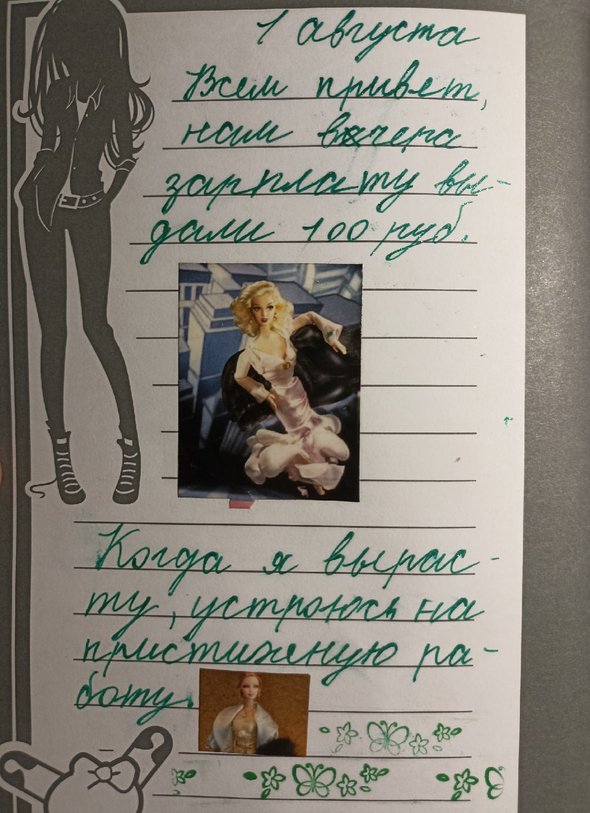 1 августа
Всем привет,
нам вчера
зарплату вы-
дали 100 руб.
Когда я вырас-
ту, устроюсь на
пристиженую ра-
боту.